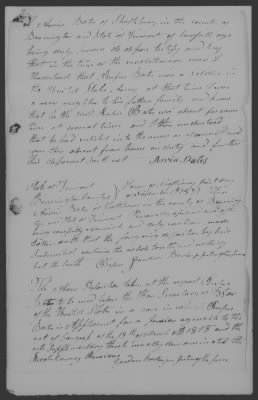 I Marvin Bates of Shaftsbury in the county of
Bennington and State of Vermont of lawfull age
being duly sworn do depose testify and say
that in the time of the revolutionary war I
understood that Rufus Bates was a soldier in
the United States Army at that time I was
a near neighbor to his fathers family and know
that he the said Rufus Bates was absent for some
time at several times and I then understood
that he had entered into the service as a soldier and
was then absent from home on duty and further
this deponent saith not Marvin Bates
State of Vermont
Bennington County
Marvin Bates of Shaftsbury in the county of Bennington
and State of Vermont Personally appeared and after
being carefully examined and duly cautioned made
Oath that the foregoing deposition by him
Subscribed contains the whole truth and nothing
but the truth Before
The above Deposition taken at the request Rufus
Bates to be used before the Secretary of War
of the United States in a case in which Rufus
Bates is Applicant for a pension agreeable to the
act of Congress of the 18 March AD 1818 and the
acts supplementary
Revolutionary Pensions